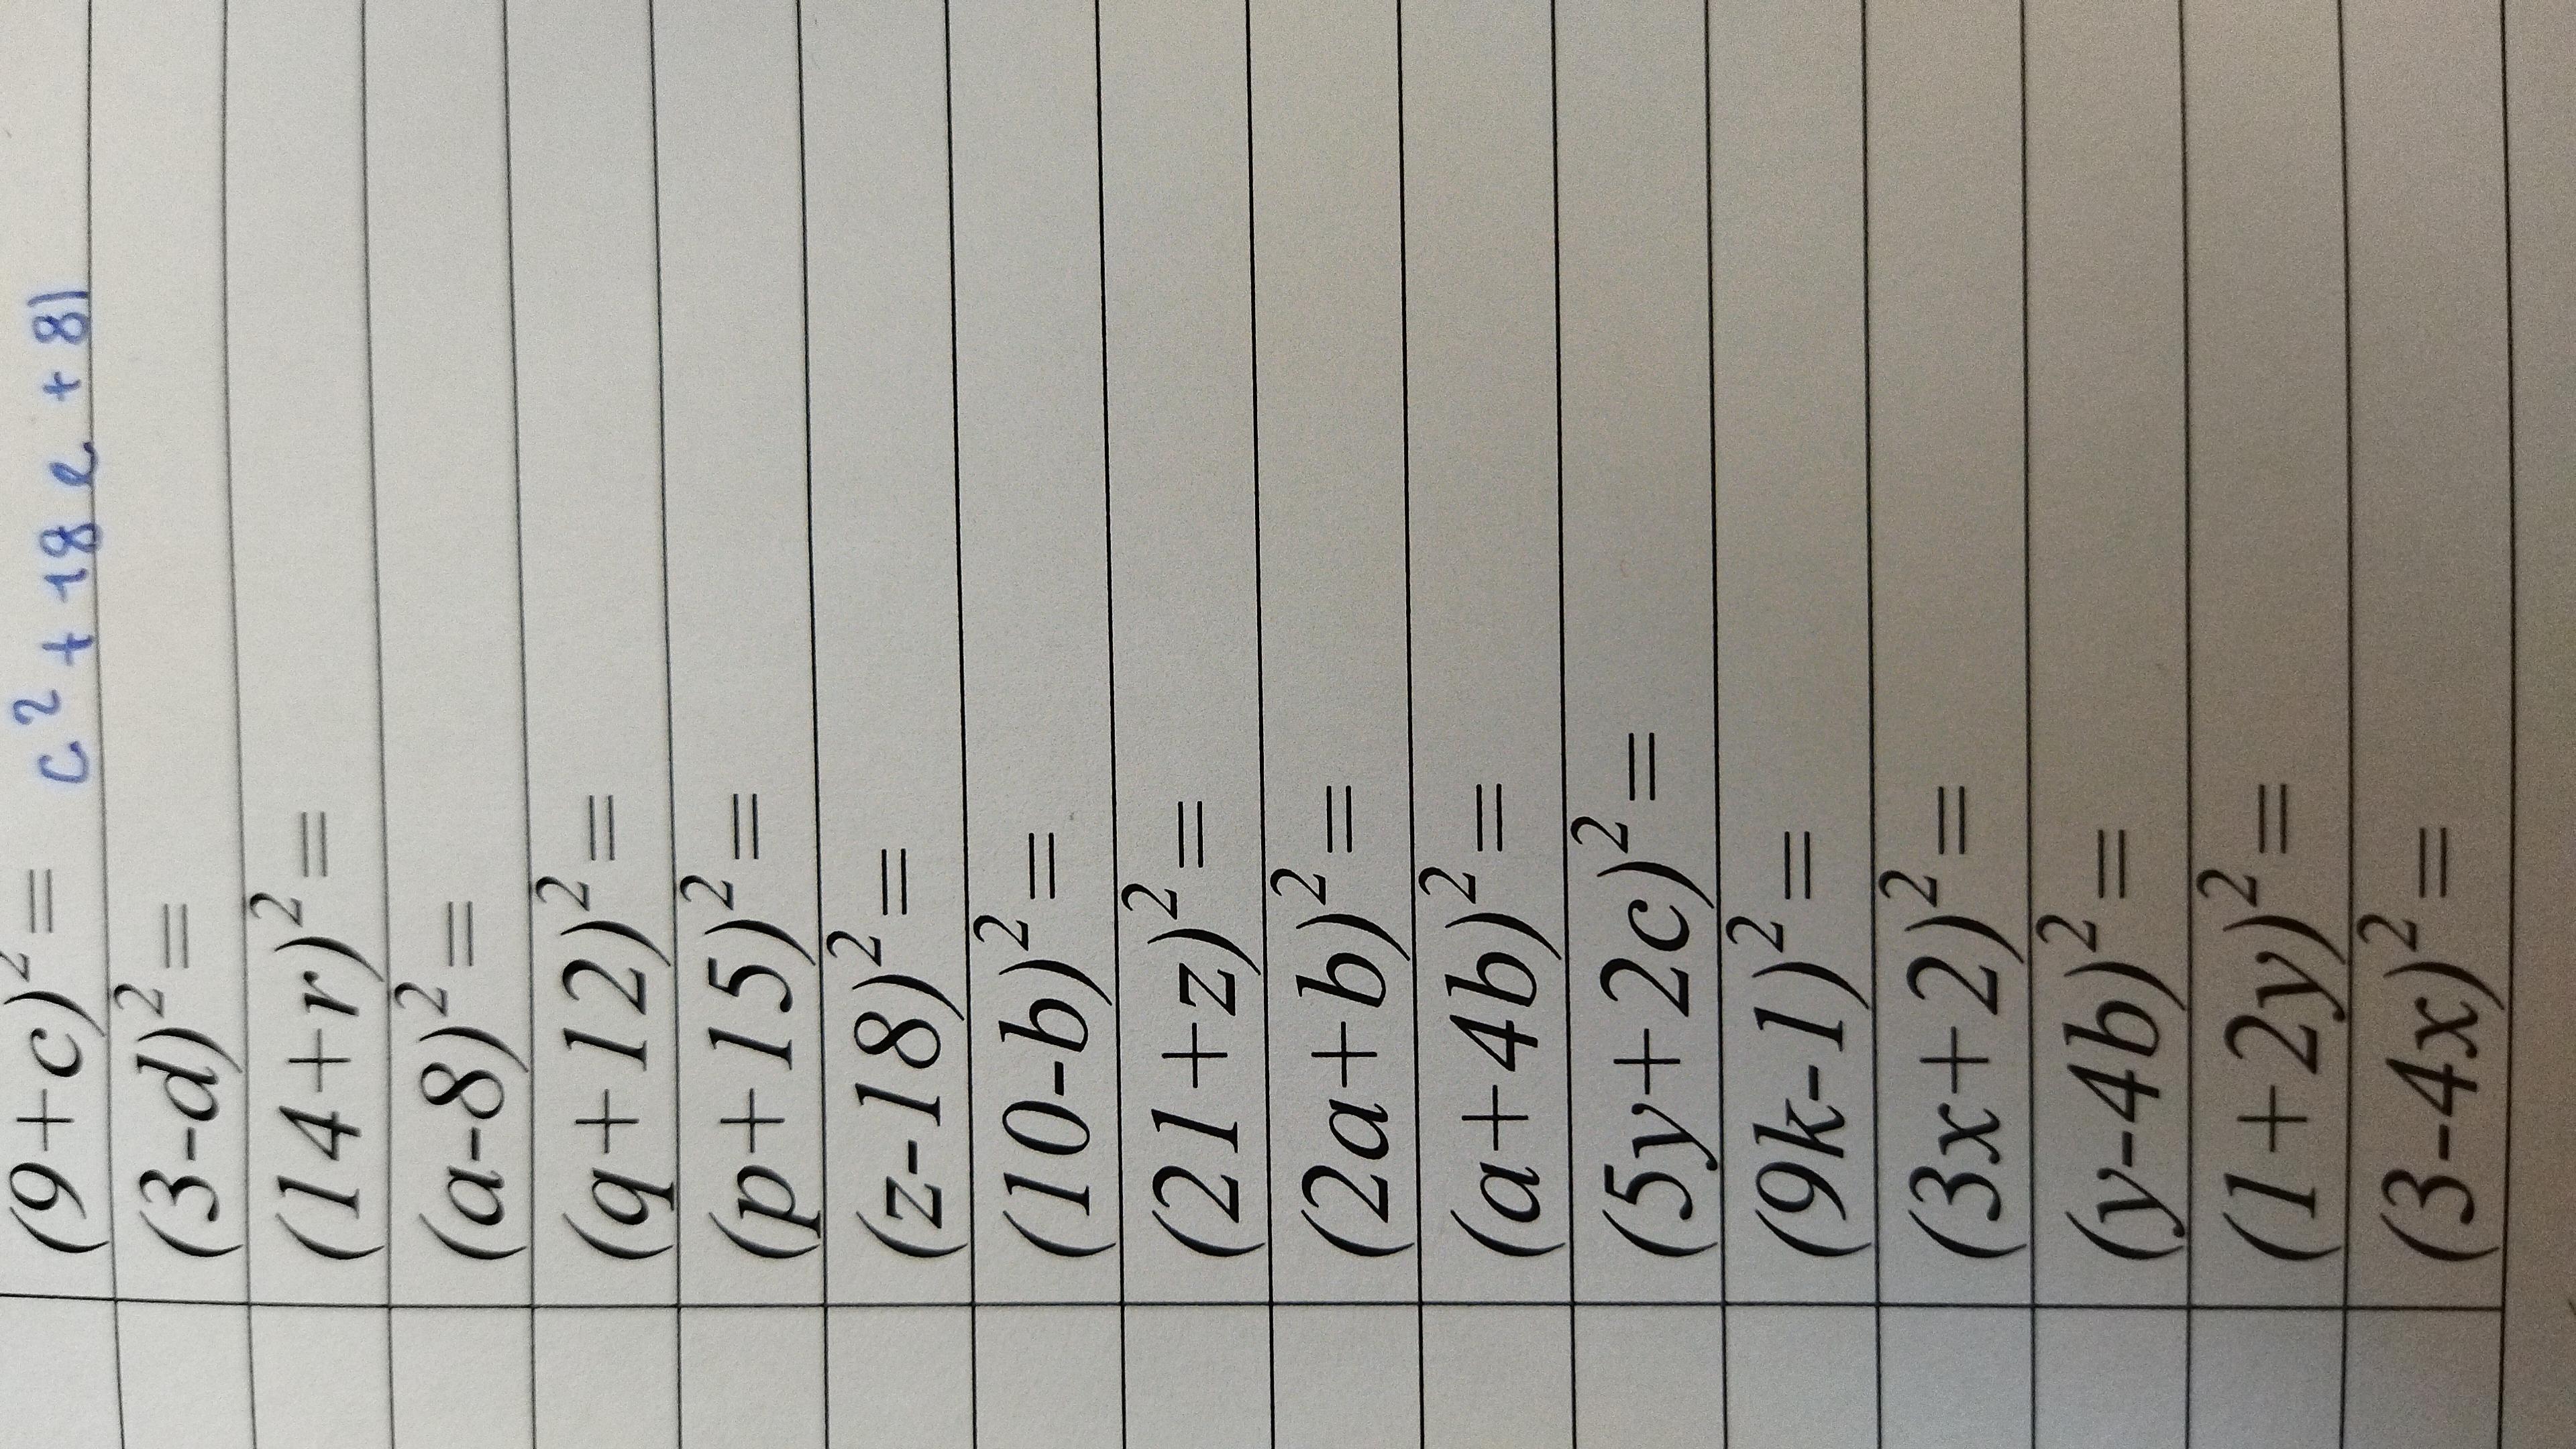 (9+c)²= c² + 18c + 81
(3-d)²=
(14+r)²=
(a-8)²=
(q+12)²=
(p+15)²=
(z-18)²=
(10-b)²=
(21+z)²=
(2a+b)²=
(a+4b)²=
(5y+2c)²=
(9k-1)²=
(3x+2)²=
(y-4b)²=
(1+2y)²=
(3-4x)²=